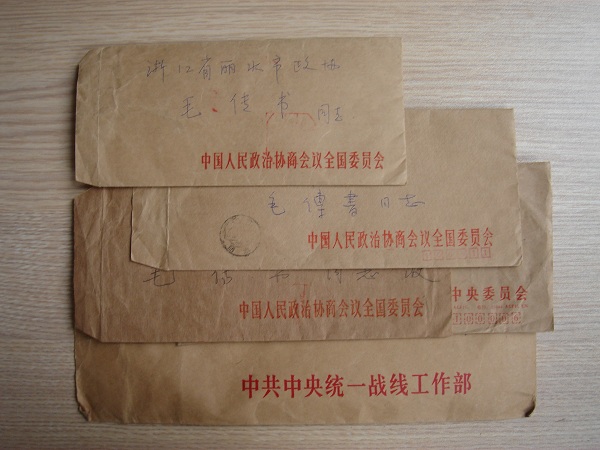 浙江省丽水市政协
毛传书 同志
中国人民政治协商会议全国委员会
毛傳書同志
中国人民政治协商会议全国委员会
中央委员会
毛传书同志收
中国人民政治协商会议全国委员会
中共中央统一战线工作部